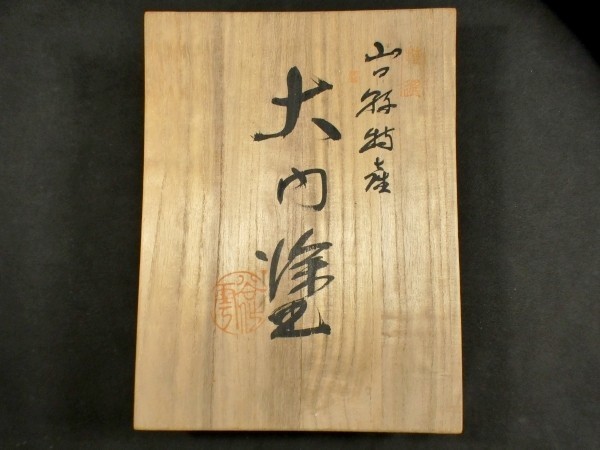 山口縣特産
大内塗